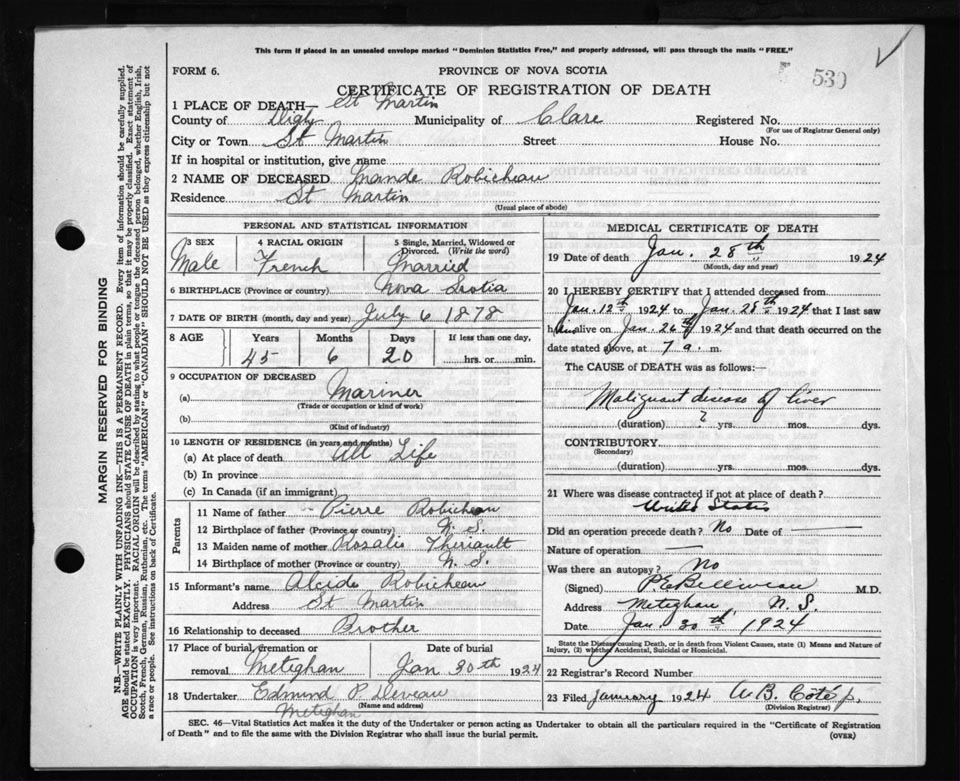 This form if placed in an unsealed envelope marked "Dominion Statistics Free," and properly addressed, will pass through the mails "FREE."
FORM 6.
PROVINCE OF NOVA SCOTIA
530
CERTIFICATE OF REGISTRATION OF DEATH
1 PLACE OF DEATH— St Martin
County of Digby Municipality of Clare Registered No.
(For use of Registrar General only)
City or Town St Martin Street House No.
If in hospital or institution, give name
2 NAME OF DECEASED Mande Robicheau
Residence St Martin
(Usual place of abode)
PERSONAL AND STATISTICAL INFORMATION
3 SEX 4 RACIAL ORIGIN 5 Single, Married, Widowed or Divorced. (Write the word)
Male French Married
6 BIRTHPLACE (Province or country) Nova Scotia
7 DATE OF BIRTH (month, day and year) July 6 1878
8 AGE Years Months Days If less than one day,
45 6 20 hrs. or min.
9 OCCUPATION OF DECEASED
(a) Mariner
(Trade or occupation or kind of work)
(b)
(Kind of industry)
10 LENGTH OF RESIDENCE (in years and months)
(a) At place of death All Life
(b) In province
(c) In Canada (if an immigrant)
Parents
11 Name of father Pierre Robicheau
12 Birthplace of father (Province or country) N. S.
13 Maiden name of mother Rosalie Theriault
14 Birthplace of mother (Province or country) N. S.
15 Informant's name Alcide Robicheau
Address St Martin
16 Relationship to deceased Brother
17 Place of burial, cremation or removal Meteghan Date of burial Jan 30th 1924
18 Undertaker Edmund P Deveau
(Name and address)
Meteghan
MEDICAL CERTIFICATE OF DEATH
19 Date of death Jan. 28th 1924
(Month, day and year)
20 I HEREBY CERTIFY that I attended deceased from
Jan. 12th 1924 to Jan. 28th 1924 that I last saw
him alive on Jan. 26th 1924 and that death occurred on the
date stated above, at 7 a. m.
The CAUSE of DEATH was as follows:—
Malignant disease of liver
(duration) ? yrs. mos. dys.
CONTRIBUTORY.
(Secondary)
(duration) yrs. mos. dys.
21 Where was disease contracted if not at place of death?
United States
Did an operation precede death? No Date of —
Nature of operation —
Was there an autopsy? No
(Signed) P.E. Belliveau M.D.
Address Meteghan N. S.
Date Jan. 30th 1924
State the Disease causing Death, or in death from Violent Causes, state (1) Means and Nature of Injury, (2) whether Accidental, Suicidal or Homicidal.
22 Registrar's Record Number
23 Filed January 1924 A B. Coté
(Division Registrar)
SEC. 46—Vital Statistics Act makes it the duty of the Undertaker or person acting as Undertaker to obtain all the particulars required in the "Certificate of Registration
of Death" and to file the same with the Division Registrar who shall issue the burial permit. (OVER)
MARGIN RESERVED FOR BINDING
N.B.—WRITE PLAINLY WITH UNFADING INK—THIS IS A PERMANENT RECORD. Every item of information should be carefully supplied.
AGE should be stated EXACTLY. PHYSICIANS should STATE CAUSE OF DEATH in plain terms, so that it may be properly classified. Exact statement of
OCCUPATION is very important. RACIAL ORIGIN will be described by stating to what people or tongue the deceased person belonged, whether English, Irish,
Scotch, French, German, Russian, Ruthenian, etc. The terms "AMERICAN" or "CANADIAN" SHOULD NOT BE USED as they express citizenship but not
a race or people. See instructions on back of Certificate.